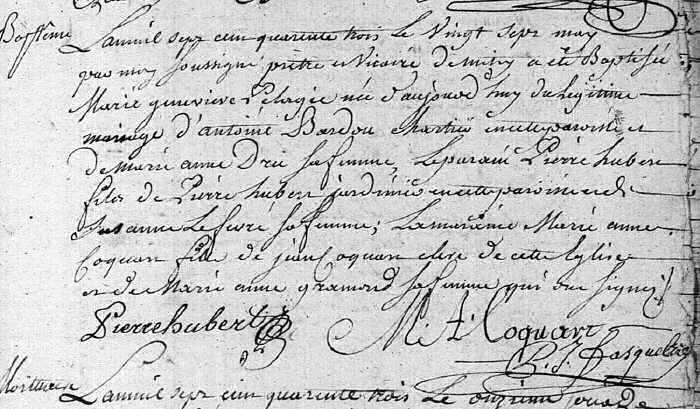 Baptême
Lan mil sept cent quarente trois le vingt sept may
par moy soussigné prêtre et vicaire de mitry a été Baptisée
Marie genevieve Pelagée née d'aujourd'huy du légitime
mariage d'antoine Bardou chartier en cette paroisse et
de Marie anne Dru sa femme, Le parain Pierre hubert
fils de Pierre hubert jardinier en cette paroisse et de
Susanne Lefevre sa femme; La maraine Marie anne
Coquart fille de jean Coquart clerc de cette Eglise
et de Marie anne gramond sa femme qui ont signez
Pierre hubert M. A. Coquart
Lan mil sept cent quarente trois Le onzieme jour de